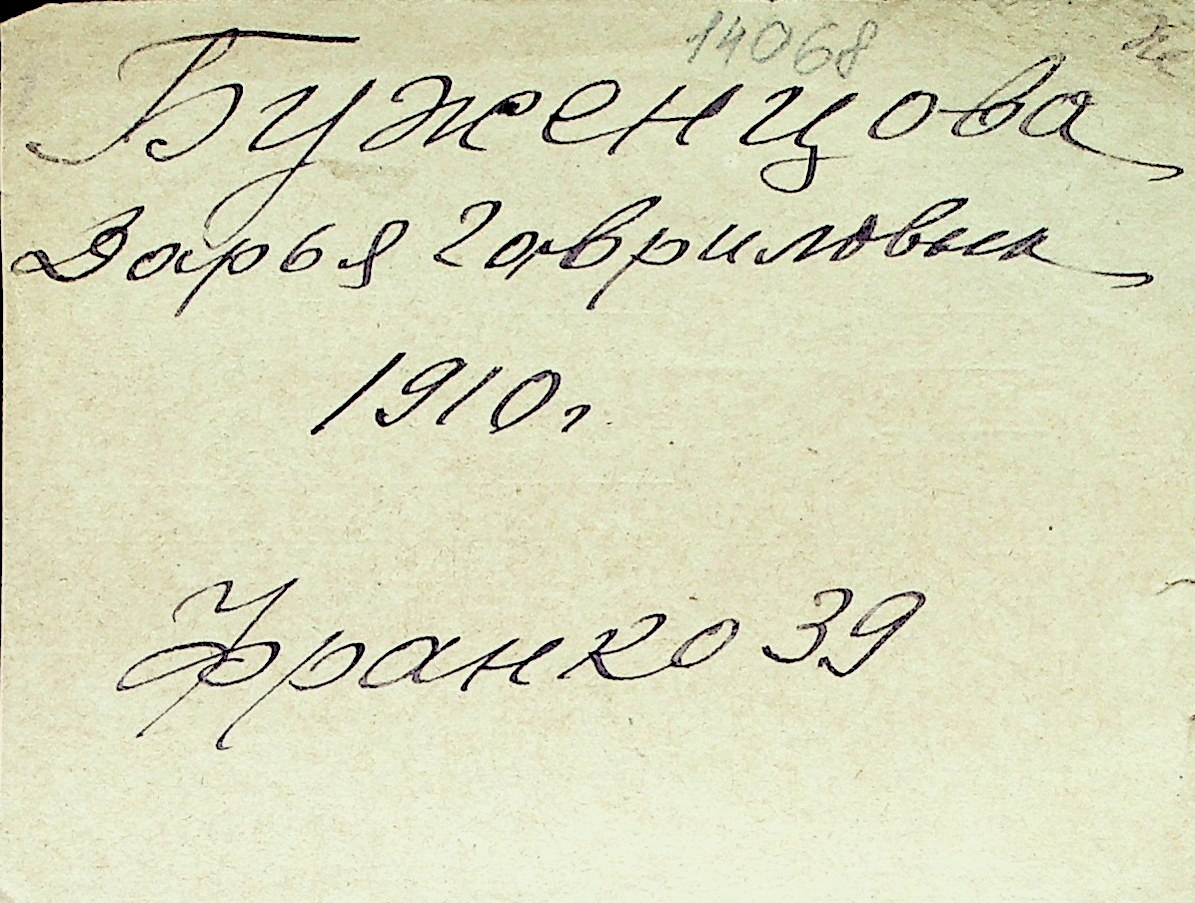 14068
Буженцова
Дарья Гавриловна
1910г
Франко 39